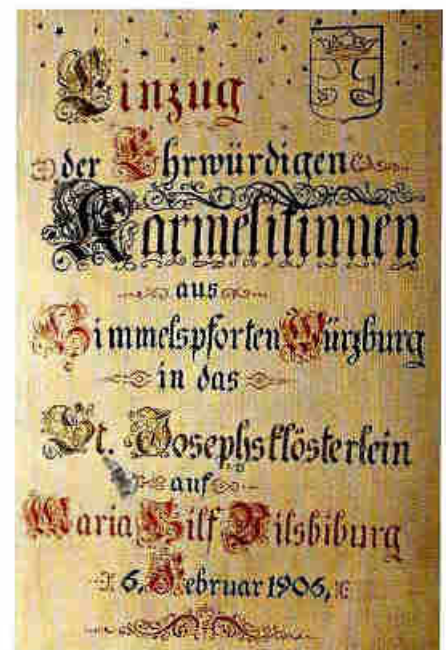 Einzug
der Ehrwürdigen
Karmelitinnen
aus
Himmelspforten Würzburg
in das
St. Josephsklösterlein
auf
Maria Hilf Vilsbiburg
6. Februar 1906.